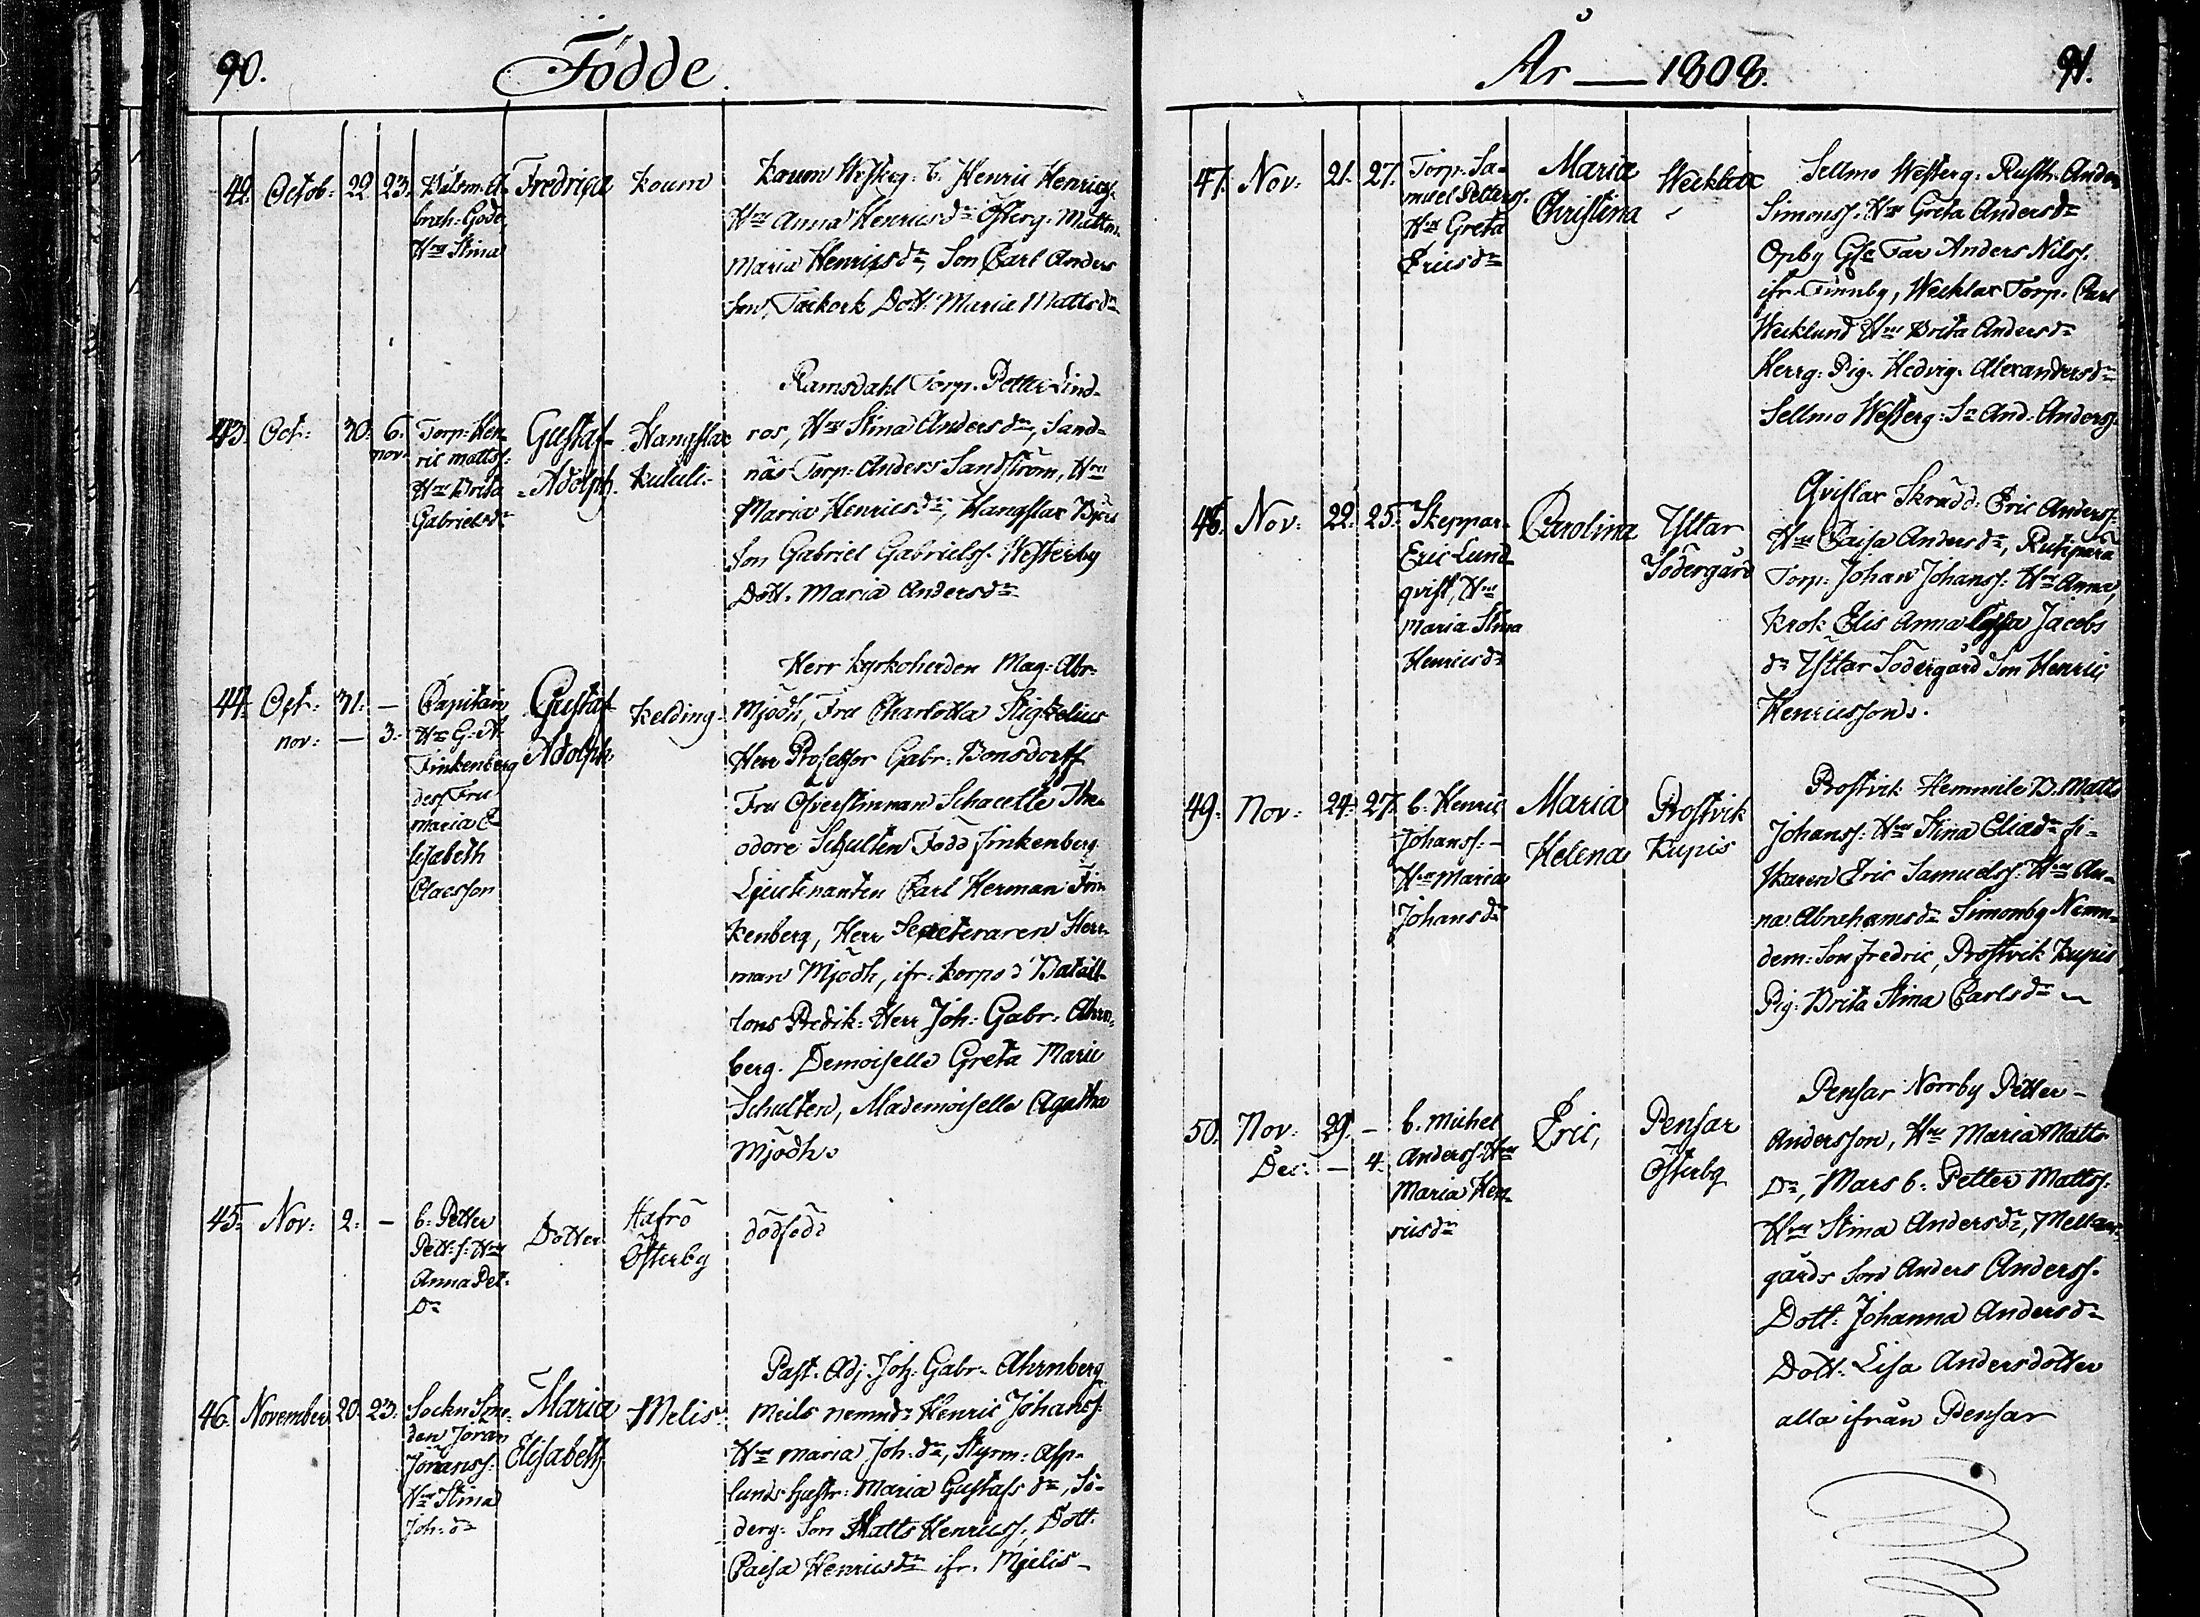 90.
Födde.
42. Octob: 22. 23. Båtsm. A-
brah: Gode,
Hru Stina
Fredrica
Koum
Koum Westerg: b. Henric Henrics.
Hru Anna Henricsdr Österg. Matts
Maria Henricsdr, Son Carl Anders
son, Tackork Dott. Maria Mattsdr
43. Oct: 30. 6.
nov:
Torp: Hen-
ric Mattss:
Hru Brita
Gabrielsdr
Gustaf
Adolph.
Hangslax
Kululi.
Ramsdahl Torp. Petter Lind-
ros, Hru Stina Andersdr, Sand-
näs Torp: Anders Sandström, Hru
Maria Henricsdr, Hangslax Bjers
Son Gabriel Gabrielss. Westerby
Dott. Maria Andersdr
44. Oct: 31. —
nov: — 3.
Capitain
Hr G. A.
Finkenberg
dess Fru
Maria E-
lisabeth
Claesson
Gustaf
Adolph.
Kelding
Herr Kyrkoherden Mag: Abr:
Mjödh, Fru Charlotta Stigzelius
Herr Professor Gabr: Bonsdorff
Fru Öfverstinnan Schacette The-
odore Schulten Född Finkenberg
Ljeutenanten Carl Herman Fin-
kenberg, Herr Secreteraren Her-
man Mjödh, ifr: Korpo d' Batail-
lons Predik: Herr Joh: Gabr: Ahrn-
berg. Demoiselle Greta Marie
Schulten, Mademoiselle Agatha
Mjödh.
45. Nov: 2. —
b: Petter
Pett:s: Hru
Anna Pet-
Dr
Dotter
Hafrö
Österby
dödfödd
46. November 20. 23.
Sockn Sme-
den Jöran
Johanss:
Hru Stina
Joh: dr
Maria
Elisabeth
Melis
Past. Adj. Joh: Gabr: Ahrnberg
Meils nemnd: Henric Johanss:
Hru Maria Joh: dr, Styrm: Asp-
lunds hustr: Maria Gustafs dr, Sö-
derg: Son Matts Henricss. Dott:
Caisa Henricsdr ifr. Mjelis
År — 1808.
91.
47. Nov: 21. 27.
Torp: Sa-
muel Petterss.
Hru Greta
Ericsdr
Maria
Christina
Wecklax
Sellmo Westerg: Rusth: Anders
Simonss. Hru Greta Andersdr
Opby Gfe Far Anders Nilss.
ifr. Finnby, Wecklax Torp. Carl
Wecklund Hru Brita Andersdr
Herrg: Pig. Hedvig Alexandersdr
Sellmo Westerg: Sn And. Anderss.
48. Nov: 22. 25.
Skeppar
Eric Lund-
qvist, Hru
Maria Stina
Henricsdr
Carolina
Yttar
Södergård
Qvislax Skrädd: Eric Anderss:
Hru Caisa Andersdr,
Torp: Johan Johanss: Hru Anna,
Krok Elis Anna Cajsa Jacobs
dr Yttar Södergård Son Henric
Henricssons.
49. Nov: 24. 27.
b: Henric
Johanss:
Hru Maria
Johansdr
Maria
Helena
Prostvik
Kupis
Prostvik Hemmile B. Matts
Johanss: Hru Stina Eliædr fi-
skaren Eric Samuelss: Hru An-
na Abrahamsdr Simonby Nemn-
dem: Son Fredric, Prostvik Kupis
Pig: Brita Stina Carlsdr
50. Nov: 29. —
Dec: — 4.
b. Michel
Anderss. Hru
Maria Hen-
ricsdr
Eric,
Pensar
Österby
Pensar Norrby Petter
Andersson, Hru Maria Matts
Dr, Mars b: Petter Mattss:
Hru Stina Andersdr, Mellan-
gårds Son Anders Anderss.
Dott: Johanna Andersdr
Dott: Lisa Andersdotter
alla ifrån Pensar